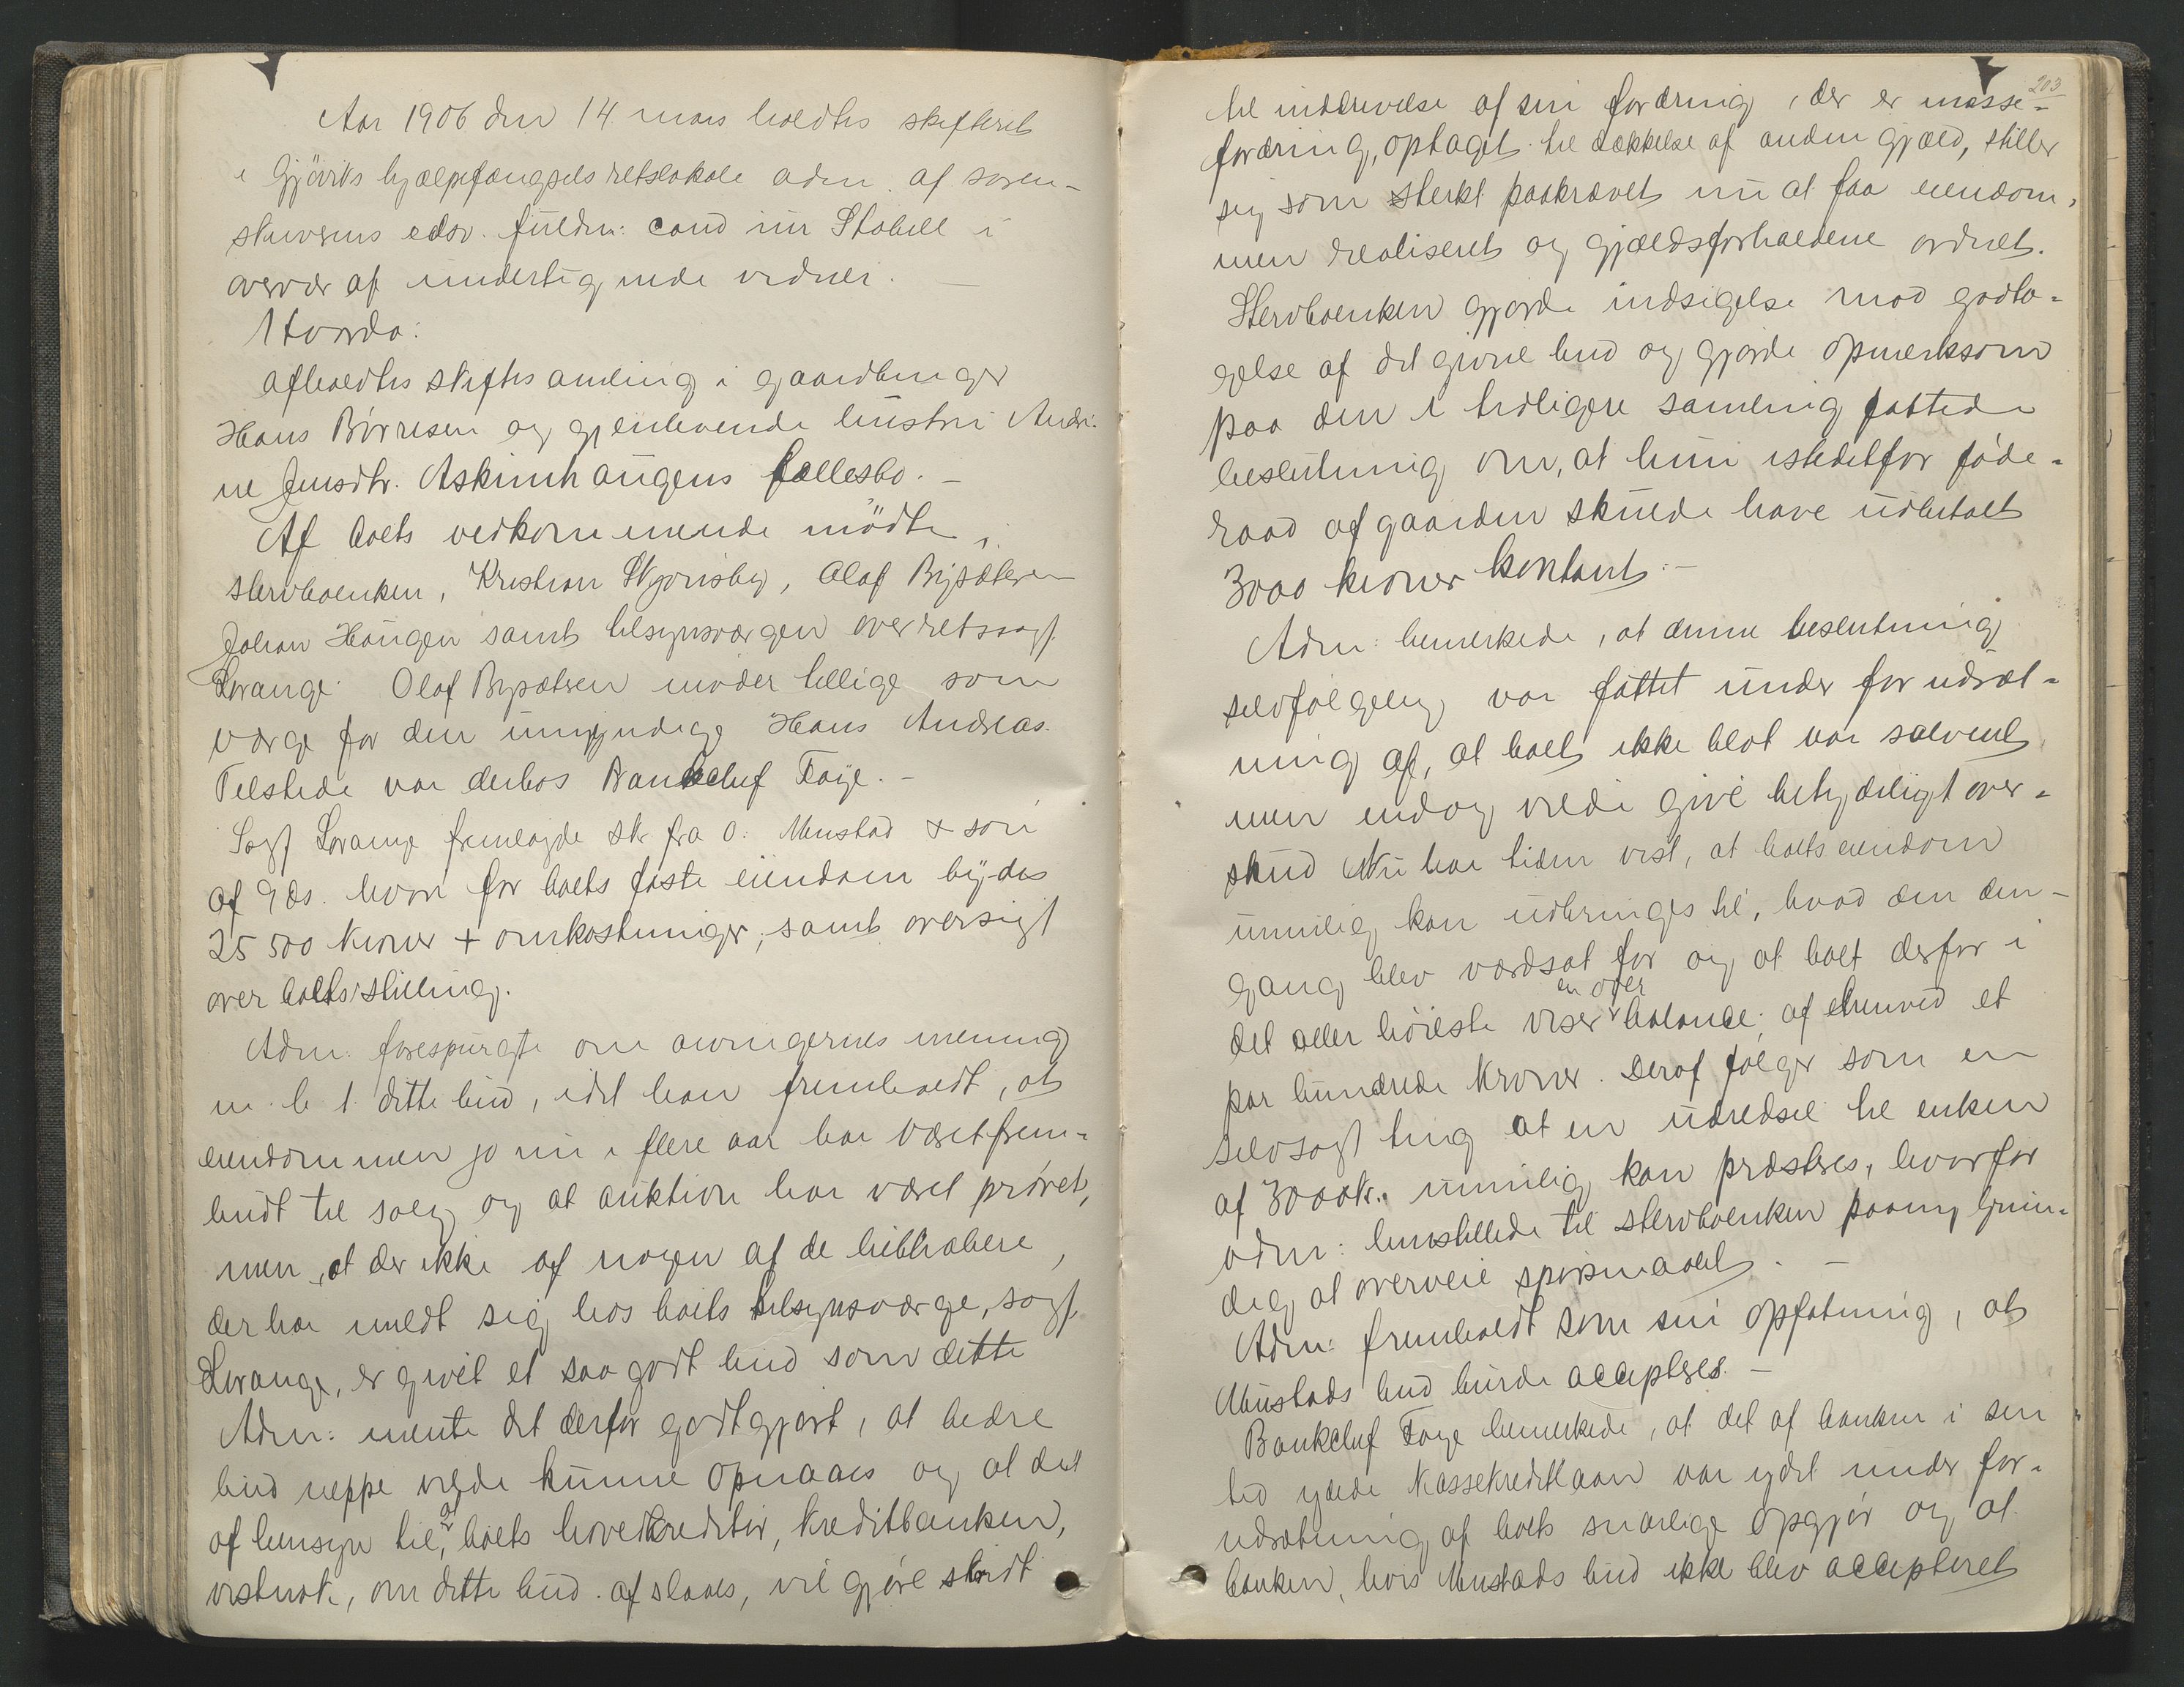 Aar 1906 den 14 mars holdtes skifteret
i Gjøviks hjælpefængsels retslokale adm. af soren-
skriverens edsv. fuldm: cand jur Stabell i
overvær af undertegnede vidner. —
Hvorda:
afholdtes skiftesamling i gaardbruger
Hans Børresen og gjenlevende hustru Andri-
ne Jensdtr. Askimhaugens fællesbo. —
Af boets vedkommende mødte
stervboenken, Kristian Skjonsby, Olaf Brysætersen
Johan Haugen samt tilsynsværgen overretssagf.
Lorange. Olaf Brysætersen møder tillige som
værge for den umyndige Hans Andreas.
Tilstede var derhos Bankchef Faye. —
Sagf Lorange fremlagde skr. fra O. Mustad & søn
af 9 ds. hvori for boets faste eiendom bydes
25 500 kroner + omkostninger, samt oversigt
over boets stilling.
Adm. forespurgte om arvingernes mening
m. h. t. dette bud, idet han fremholdt, at
eiendommen jo nu i flere aar har været frem-
budt til salg og at auktion har været prøvet,
men, at der ikke af nogen af de liebhabere,
der har meldt sig hos boets tilsynsværge, sagf.
Lorange, er givet et saa godt bud som dette
Adm: mente det derfor godtgjort, at bedre
bud neppe vilde kunne opnaaes og at det
af hensyn til, at boets hovedkreditor, Kreditbanken,
vistnok, om dette bud afslaaes, vil gjøre skridt
203
til inddrivelse af sin fordring, der er masse-
fordring, optaget til dækkelse af anden gjæld, stiller
sig som sterkt paakrævet nu at faa eiendom-
men realiseret og gjældsforholdene ordnet.
Stervboenken gjorde indsigelse mod godta-
gelse af det givne bud og gjorde opmerksom
paa den i tidligere samling fattede
beslutning om, at hun istedetfor føde-
raad af gaarden skulde have udbetalt
3000 kroner kontant: —
Adm: bemerkede, at denne beslutning
selvfølgelig var fattet under forudsæt-
ning af, at boet ikke blot var solvent,
men endog vilde give betydeligt over-
skud Nu har tiden vist, at boets eiendom
umulig kan udbringes til, hvad den den-
gang blev værdsat for og at boet derfor i
det aller høieste viser en overbalance af henved et
par hundrede kroner. Deraf følger som en
selvsagt ting at en udredsel til enken
af 3000 kr. umulig kan præsteres, hvorfor
adm: henstillede til stervboenken paany grun-
dig at overveie spørsmaalet. —
Adm: fremholdt som sin opfatning, at
Mustads bud burde accepteres. —
Bankchef Faye bemerkede, at det af banken i sin
tid ydede Kassekreditlaan var ydet under for-
udsætning af boets snarlige opgjør og at
banken, hvis Mustads bud ikke blev accepteret